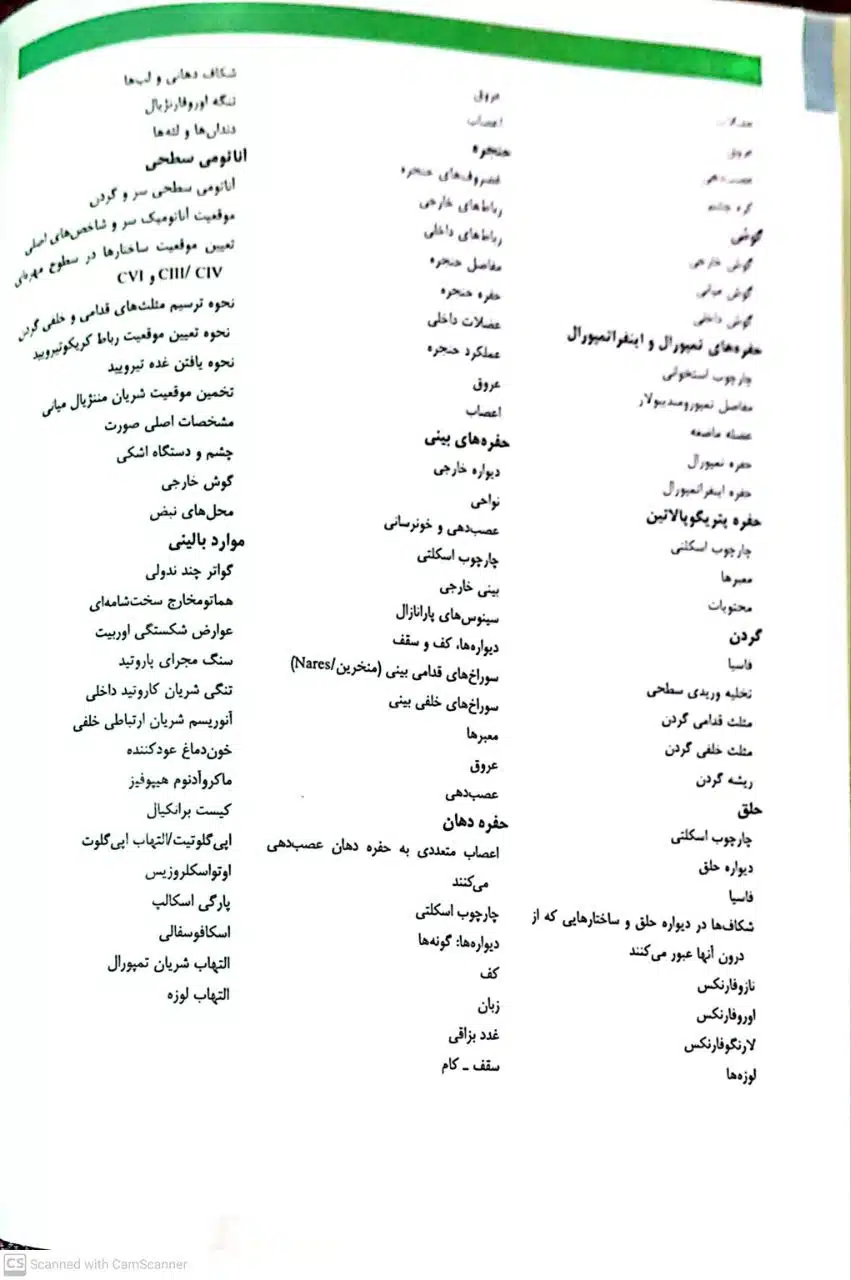 عضلات
عروق
عصب‌دهی
کره چشم
گوش
گوش خارجی
گوش میانی
گوش داخلی
حفره‌های تمپورال و اینفراتمپورال
چارچوب استخوانی
مفاصل تمپورومندیبولار
عضله ماضغه
حفره تمپورال
حفره اینفراتمپورال
حفره پتریگوپالاتین
چارچوب اسکلتی
معبرها
محتویات
گردن
فاسیا
تخلیه وریدی سطحی
مثلث قدامی گردن
مثلث خلفی گردن
ریشه گردن
حلق
چارچوب اسکلتی
دیواره حلق
فاسیا
شکاف‌ها در دیواره حلق و ساختارهایی که از
درون آنها عبور می‌کنند
نازوفارنکس
اوروفارنکس
لارنگوفارنکس
لوزه‌ها
عروق
اعصاب
حنجره
غضروف‌های حنجره
رباط‌های خارجی
رباط‌های داخلی
مفاصل حنجره
حفره حنجره
عضلات داخلی
عملکرد حنجره
عروق
اعصاب
حفره‌های بینی
دیواره خارجی
نواحی
عصب‌دهی و خونرسانی
چارچوب اسکلتی
بینی خارجی
سینوس‌های پارانازال
دیواره‌ها، کف و سقف
سوراخ‌های قدامی بینی (منخرین/Nares)
سوراخ‌های خلفی بینی
معبرها
عروق
عصب‌دهی
حفره دهان
اعصاب متعددی به حفره دهان عصب‌دهی
می‌کنند
چارچوب اسکلتی
دیواره‌ها: گونه‌ها
کف
زبان
غدد بزاقی
سقف ـ کام
شکاف دهانی و لب‌ها
تنگه اوروفارنژیال
دندان‌ها و لثه‌ها
آناتومی سطحی
آناتومی سطحی سر و گردن
موقعیت آناتومیک سر و شاخص‌های اصلی
تعیین موقعیت ساختارها در سطوح مهره‌ای
CIII/ CIV و CVI
نحوه ترسیم مثلث‌های قدامی و خلفی گردن
نحوه تعیین موقعیت رباط کریکوتیرویید
نحوه یافتن غده تیرویید
تخمین موقعیت شریان مننژیال میانی
مشخصات اصلی صورت
چشم و دستگاه اشکی
گوش خارجی
محل‌های نبض
موارد بالینی
گواتر چند ندولی
هماتومخارج سخت‌شامه‌ای
عوارض شکستگی اوربیت
سنگ مجرای پاروتید
تنگی شریان کاروتید داخلی
آنوریسم شریان ارتباطی خلفی
خون‌دماغ عودکننده
ماکروآدنوم هیپوفیز
کیست برانکیال
اپی‌گلوتیت/التهاب اپی‌گلوت
اوتواسکلروزیس
پارگی اسکالپ
اسکافوسفالی
التهاب شریان تمپورال
التهاب لوزه
CS Scanned with CamScanner